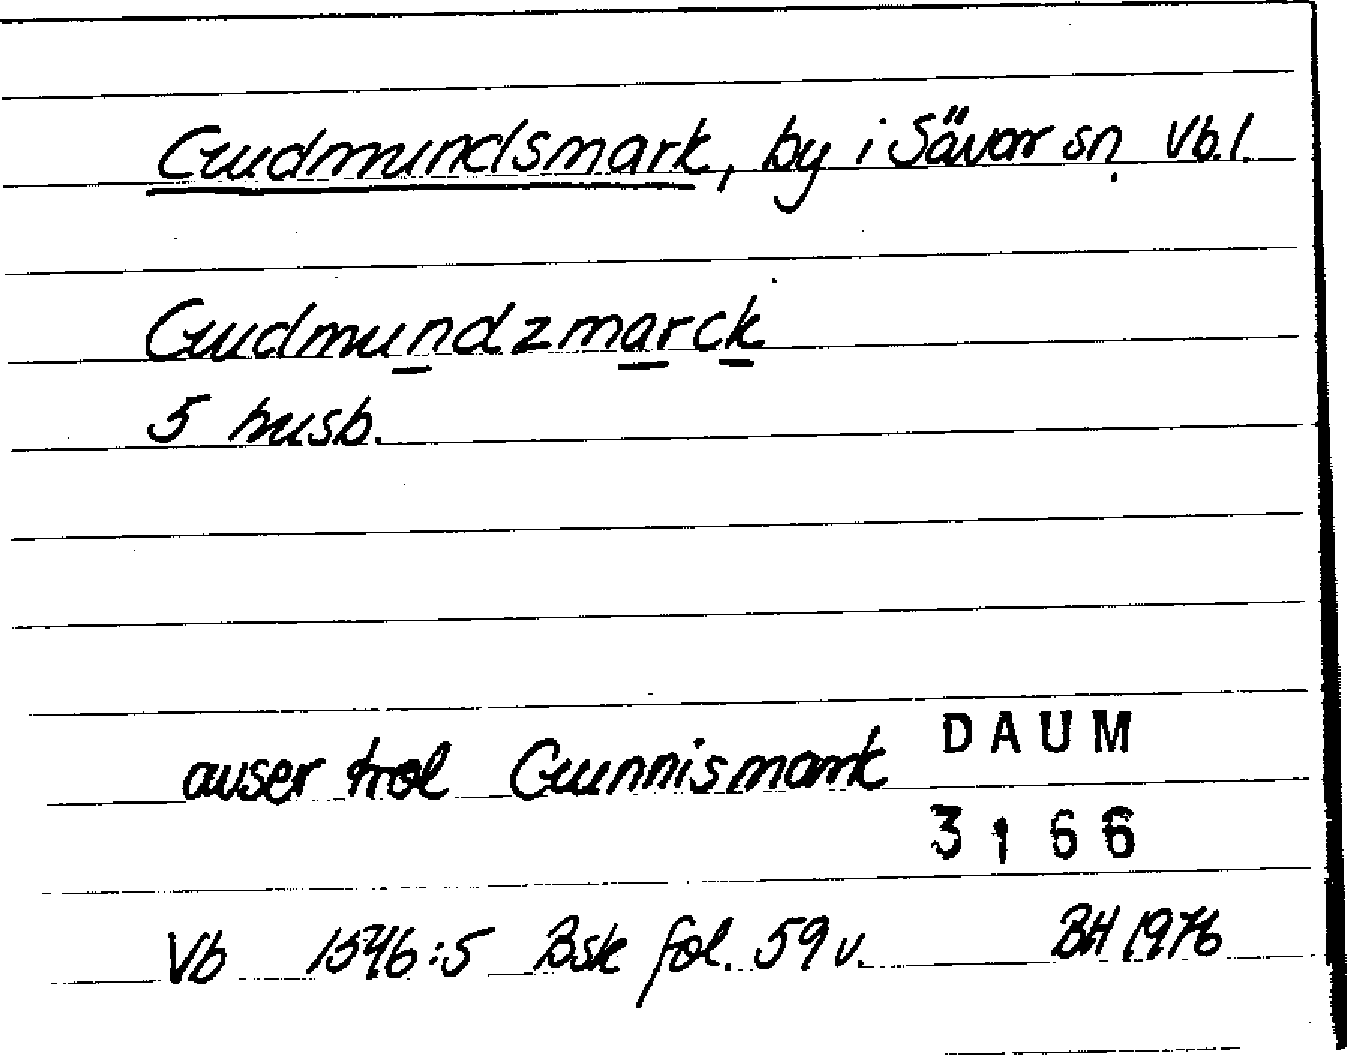 Gudmundsmark, by i Sävar sn. Vb.l.
Gudmundzmarck
5 husb.
avser trol Gunnismark
DAUM
3166
Vb 1546:5 Bsk fol. 59 v. BH 1976